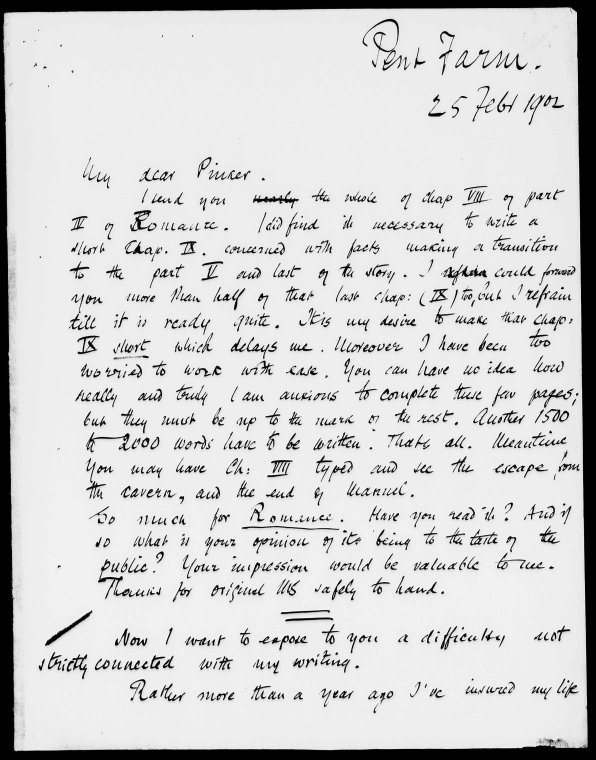 Pent Farm.
25 Febr 1902
My dear Pinker.
I send you nearly the whole of chap VIII of part
IV of Romance. I did find it necessary to write a
short Chap. IX. concerned with facts making a transition
to the part V and last of the story. I could forward
you more than half of that last chap: (IX) too, but I refrain
till it is ready quite. It is my desire to make that chap:
IX short which delays me. Moreover I have been too
worried to work with ease. You can have no idea how
really and truly I am anxious to complete these few pages;
but they must be up to the mark of the rest. Another 1500
to 2000 words have to be written. That's all. Meantime
You may have Ch: VIII typed and see the escape from
the cavern, and the end of Manuel.
So much for Romance. Have you read it? And if
so what is your opinion of its being to the taste of the
public? Your impression would be valuable to me.
Thanks for original MS safely to hand.
Now I want to expose to you a difficulty not
strictly connected with my writing.
Rather more than a year ago I've insured my life